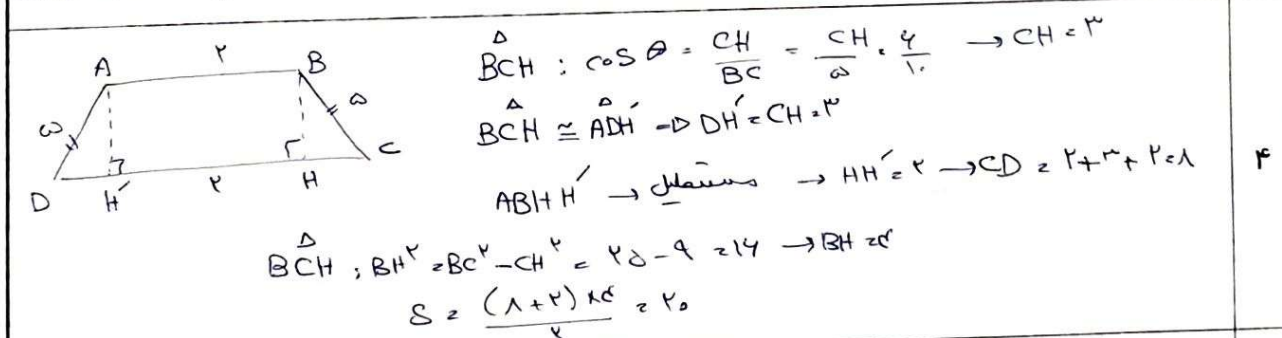 ۲
A B
۵ ۵
D H′ ۲ H C
BCH : cos θ = CH/BC = CH/۵ = ۶/۱۰ → CH = ۳
BCH ≅ ADH′ ⇒ DH′ = CH = ۳
ABHH′ → مستطیل → HH′ = ۲ → CD = ۲+۳+۲=۸
۴
BCH ; BH^۲ = BC^۲ - CH^۲ = ۲۵ - ۹ = ۱۶ → BH = ۴
S = (۸+۲)×۴/۲ = ۲۰